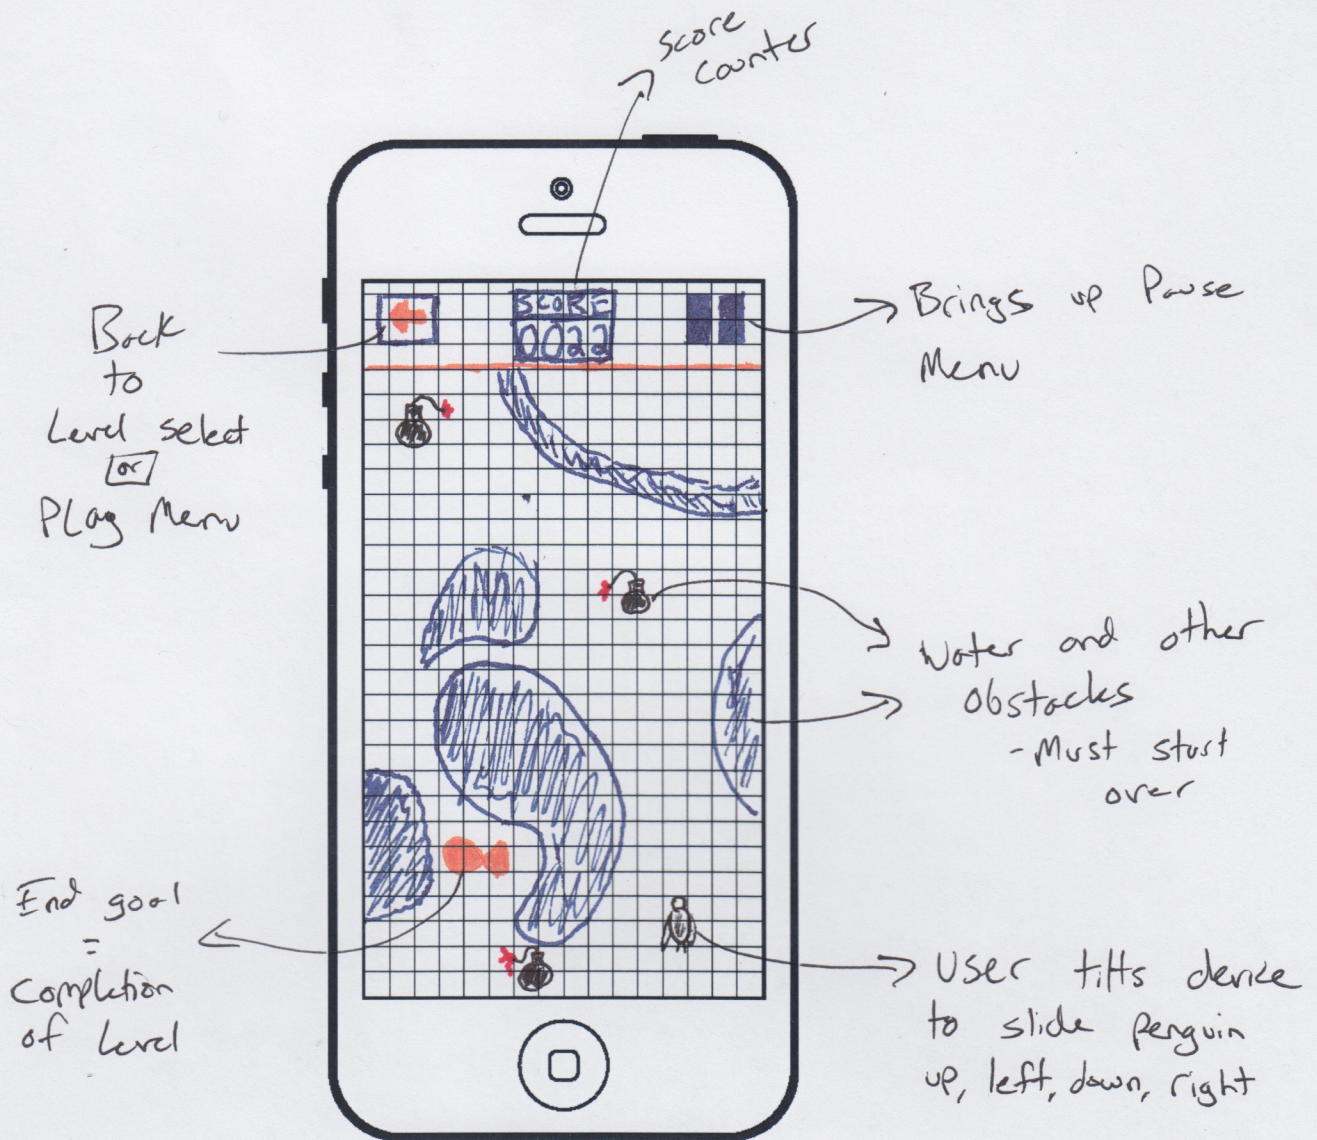 score
counter
SCORE
0022
Back
to
Level select
or
Play Menu
Brings up Pause
Menu
Water and other
obstacles
- Must start
over
End goal
=
Completion
of Level
User tilts device
to slide penguin
up, left, down, right